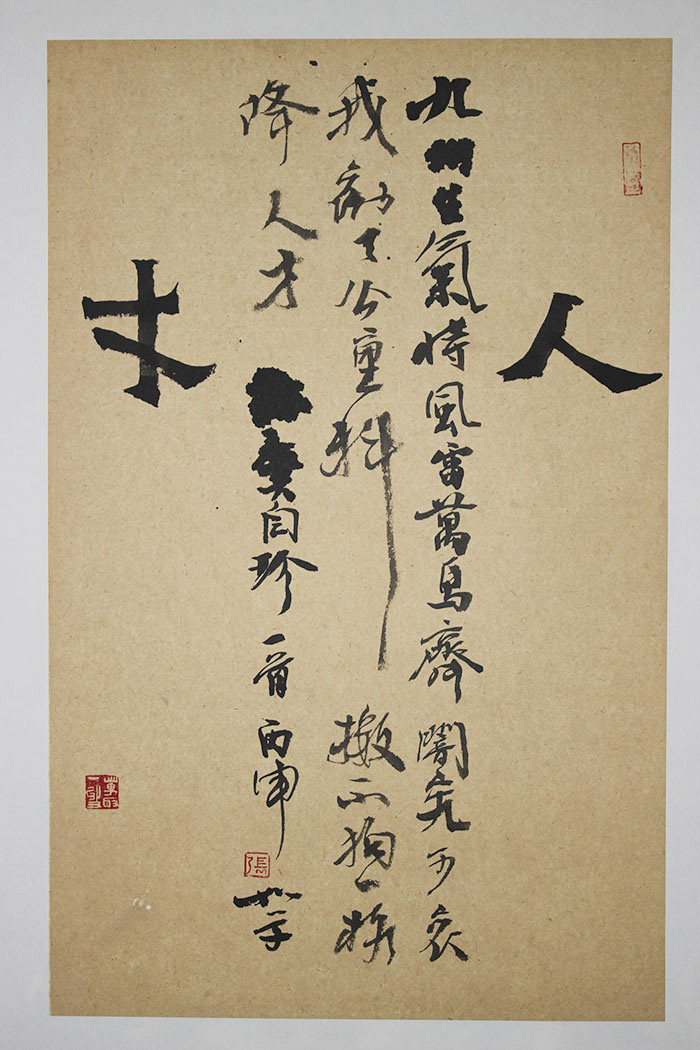 人
九州生氣恃風雷萬馬齊闇究可哀
我勸天公重抖擻不拘一格
降人才 龔自珍一首 丙申
張
才